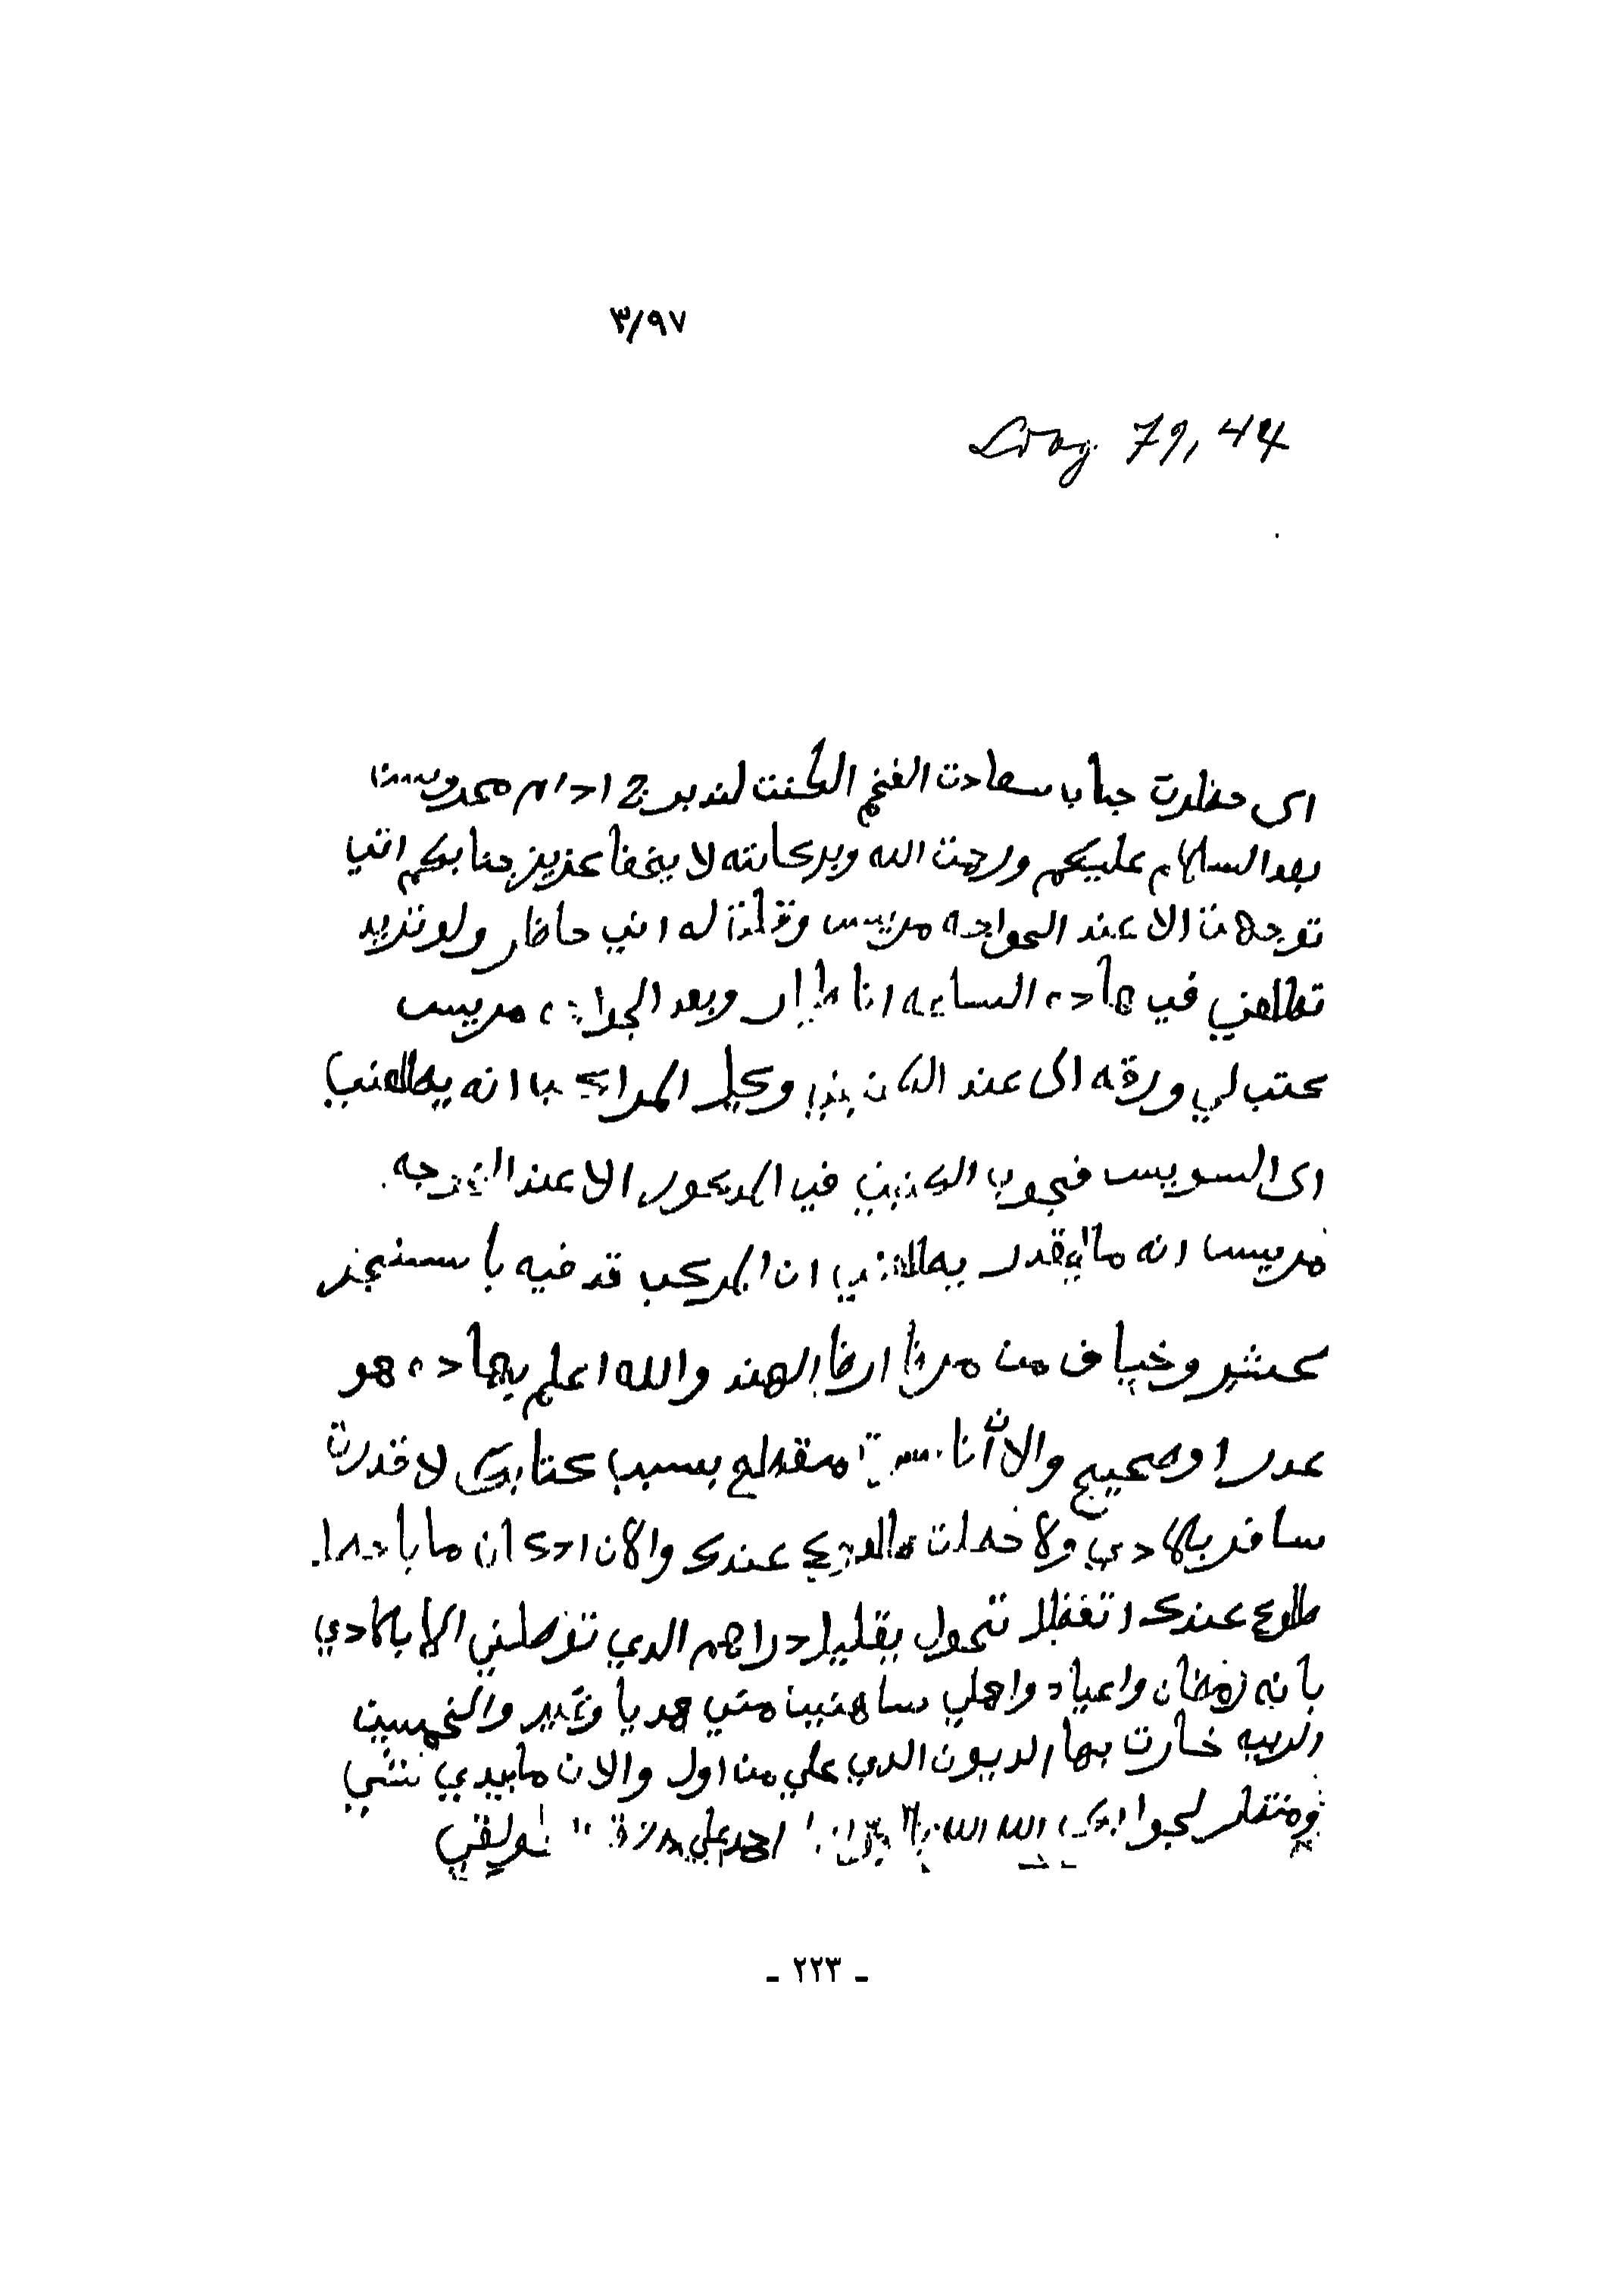 ٣/٩٧
79, 44
الى حظارت جناب سعادت الفخم الكنت لندبرج ادام محروسا
بعد السلام عليكم ورحمت الله وبركاته لا يخفا عزيز جنابكم انني
توجهت الا عند الخواجه مريس وقلت له اني حاظر ولو تريد
تطلعني في هاده الساعه انا طالع وبعد الجواب مريس
كتب لي ورقه الى عند الكبتين وكيل المراكب با انه يطلعني
الى السويس فجوب الكبتين في المدكور الا عند الخوجه
مريس انه ما يقدر يطلعني ان المركب قد فيه باسنيجز
كثير وخياف من مرظ ارظ الهند والله اعلم بهاده هو
عدر او صحيح والا الآن انا مقطع بسبب كتابك لا قدرت
سافر بلادي ولا خملت طلوع عندك والان ادكان ما با
طلوع عندك اتفظل تحول بقليل دراهم الدي توصلني الا بلادي
بانه رمظان واعياد واهلي ساهنين مني هديا وغير والخمسين
الربيه خارت بها الديون الدي علي من اول والان ما بيدي شي
ومنتظر لجوابك الله الله احمد علي
- ٢٢٣ -